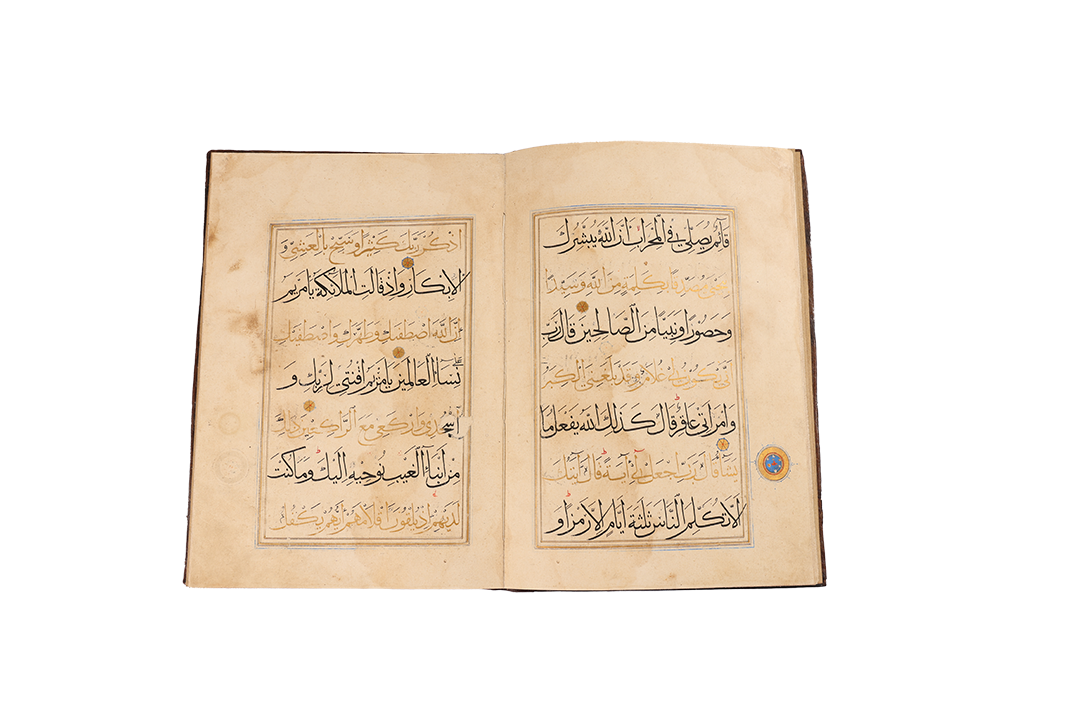 قائم يصلي في المحراب ان الله يبشرك
بيحيى مصدقا بكلمة من الله وسيدا
وحصورا ونبيا من الصالحين قال رب
انى يكون لي غلام وقد بلغني الكبر
وامراتي عاقر قال كذلك الله يفعل ما
يشاء قال رب اجعل لي آية قال آيتك
الا تكلم الناس ثلثة ايام الا رمزا و
اذكر ربك كثيرا وسبح بالعشي و
الابكار واذ قالت الملائكة يا مريم
ان الله اصطفيك وطهرك واصطفيك
على نساء العالمين يا مريم اقنتي لربك و
اسجدي واركعي مع الراكعين ذلك
من انباء الغيب نوحيه اليك وما كنت
لديهم اذ يلقون اقلامهم ايهم يكفل